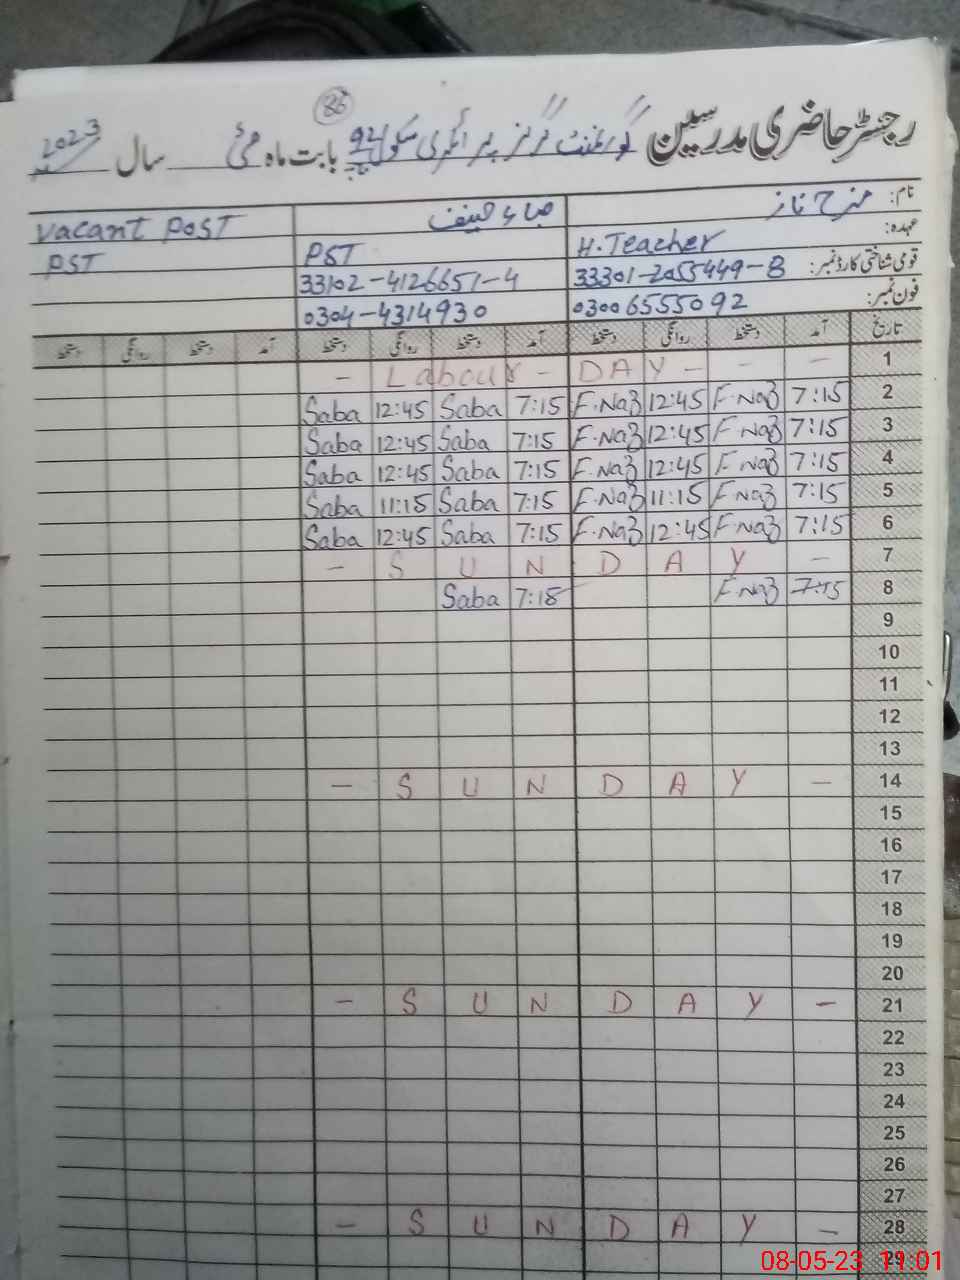 86
رجسٹر حاضری مدرسین گورنمنٹ گرلز پرائمری سکول 92 بابت ماہ مئی سال 2023
نام: فرح ناز صباء حنیف vacant post
عہدہ: H.Teacher PST PST
قومی شناختی کارڈ نمبر: 33301-2055449-8 33102-4126651-4
فون نمبر: 03006555092 0304-4314930
تاریخ آمد دستخط روانگی دستخط آمد دستخط روانگی دستخط آمد دستخط روانگی دستخط
- Labour - DAY - - - 1
Saba 12:45 Saba 7:15 F.Naz 12:45 F.Naz 7:15 2
Saba 12:45 Saba 7:15 F.Naz 12:45 F.Naz 7:15 3
Saba 12:45 Saba 7:15 F.Naz 12:45 F.Naz 7:15 4
Saba 11:15 Saba 7:15 F.Naz 11:15 F.Naz 7:15 5
Saba 12:45 Saba 7:15 F.Naz 12:45 F.Naz 7:15 6
- S U N D A Y - 7
Saba 7:18 F.Naz 7:15 8
9
10
11
12
13
- S U N D A Y - 14
15
16
17
18
19
20
- S U N D A Y - 21
22
23
24
25
26
27
- S U N D A Y - 28
29
08-05-23 11:01